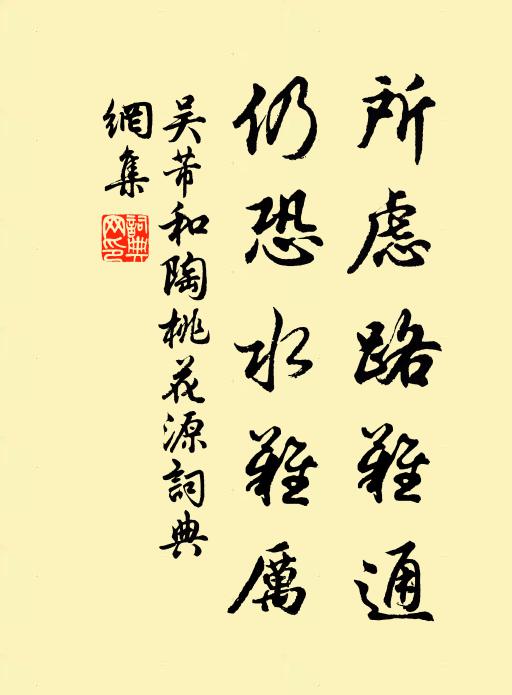 所慮路難通
仍恐水難厲
吴芾和陶桃花源詞典
網集
詞典網印